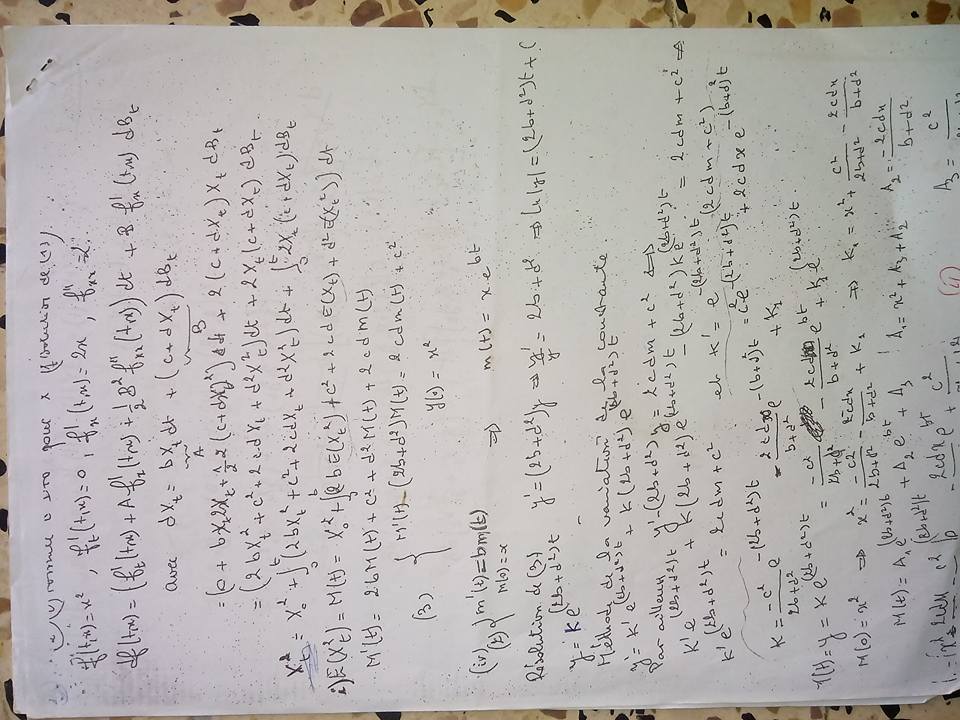 formule d'ITO pour x² (solution de (1)).
f(t,x)=x² , f'_t(t,x)=0 , f'_x(t,x)=2x , f''_xx=2.
df(t,x)=(f'_t(t,x)+A f'_x(t,x)+½B² f''_xx(t,x))dt + B f'_x(t,x) dB_t
avec dX_t = bX_t dt + (c+dX_t) dB_t
A B
=(0 + bX_t2X_t + ½ 2 (c+dX_t)²) dt + 2(c+dX_t)X_t dB_t
=(2bX_t² + c² + 2cdX_t + d²X_t²)dt + 2X_t(c+dX_t) dB_t
X_t² = X_0² + ∫_0^t (2bX_t²+c²+2cdX_t+d²X_t²)dt + ∫_0^t 2X_t(c+dX_t)dB_t
i) E(X_t²)=M(t)= X_0² + ∫_0^t (2bE(X_t²)+c²+2cdE(X_t)+d²E(X_t²))dt
M'(t)= 2bM(t)+c²+d²M(t)+2cdm(t)
(3) { M'(t)-(2b+d²)M(t)=2cdm(t)+c²
y(0)=x²
(iv) (t) { m'(t)=bm(t) ⇒ m(t)=x e^{bt}
m(0)=x
Résolution de (3) y'=(2b+d²)y ⇒ y'/y = 2b+d² ⇒ Ln|y|=(2b+d²)t+C
y=Ke^{(2b+d²)t}
Méthode de la variation de la constante.
y'=K'e^{(2b+d²)t} + K(2b+d²)e^{(2b+d²)t}
Par ailleurs y'-(2b+d²)y=2cdm+c² ⇔
K'e^{(2b+d²)t} + K(2b+d²)e^{(2b+d²)t} -(2b+d²)Ke^{(2b+d²)t} = 2cdm+c² ⇔
K'e^{(2b+d²)t} = 2cdm+c² et K'=e^{-(2b+d²)t}(2cdm+c²)
=c²e^{-(2b+d²)t} + 2cdxe^{-(b+d²)t}
K = -c²/(2b+d²) e^{-(2b+d²)t} - 2cdx/(b+d²) e^{-(b+d²)t} + K_1
M(t)=y=Ke^{(2b+d²)t} = -c²/(2b+d²) - 2cdx/(b+d²) e^{bt} + K_1e^{(2b+d²)t}
M(0)=x² ⇒ x² = -c²/(2b+d²) - 2cdx/(b+d²) + K_1 ⇒ K_1=x²+ c²/(2b+d²) - 2cdx/(b+d²)
M(t)=A_1e^{(2b+d²)t} + A_2e^{bt} + A_3 A_1=x²+A_3+A_2 A_2= -2cdx/(b+d²)
e^{(2b+d²)t} - 2cdxe^{bt} + c² (4) A_3= c²